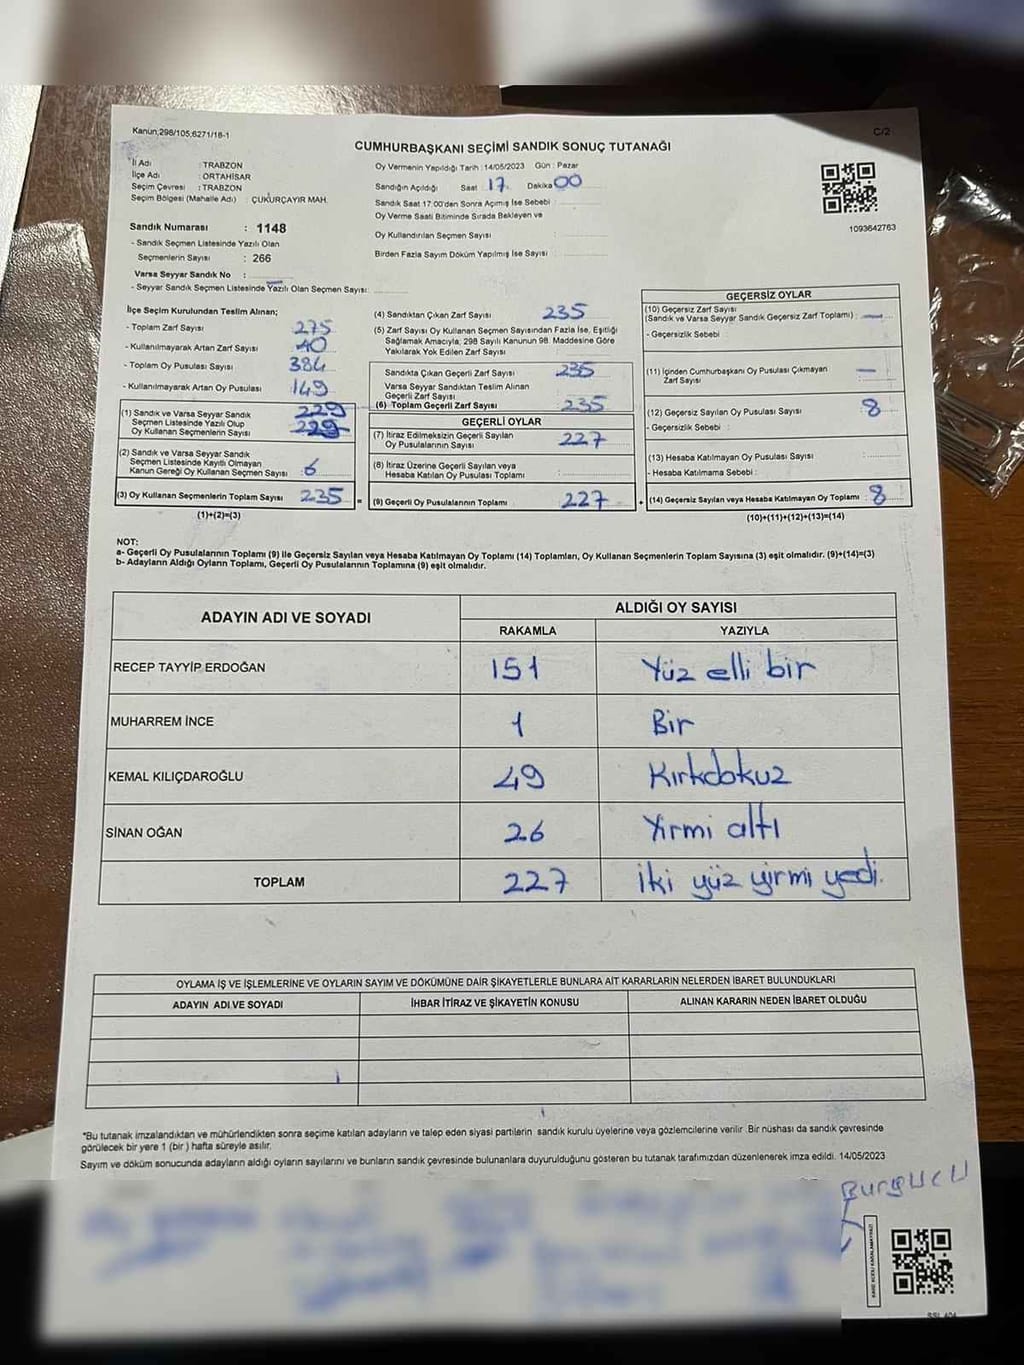 Kanun,298/105,6271/16-1
C/2
CUMHURBAŞKANI SEÇİMİ SANDIK SONUÇ TUTANAĞI
İl Adı : TRABZON
İlçe Adı : ORTAHİSAR
Seçim Çevresi : TRABZON
Seçim Bölgesi (Mahalle Adı) : ÇUKURÇAYIR MAH.
Oy Vermenin Yapıldığı Tarih : 14/05/2023 Gün : Pazar
Sandığın Açıldığı Saat 17 Dakika 00
Sandık Saat 17:00'den Sonra Açılmış İse Sebebi :
Oy Verme Saati Bitiminde Sırada Bekleyen ve
Oy Kullandırılan Seçmen Sayısı :
Birden Fazla Sayım Döküm Yapılmış İse Sayısı :
1093642763
Sandık Numarası : 1148
- Sandık Seçmen Listesinde Yazılı Olan
Seçmenlerin Sayısı : 266
Varsa Seyyar Sandık No :
- Seyyar Sandık Seçmen Listesinde Yazılı Olan Seçmen Sayısı:
İlçe Seçim Kurulundan Teslim Alınan;
- Toplam Zarf Sayısı 275
- Kullanılmayarak Artan Zarf Sayısı 40
- Toplam Oy Pusulası Sayısı 384
- Kullanılmayarak Artan Oy Pusulası 149
(1) Sandık ve Varsa Seyyar Sandık 229
Seçmen Listesinde Yazılı Olup
Oy Kullanan Seçmenlerin Sayısı 229
(2) Sandık ve Varsa Seyyar Sandık
Seçmen Listesinde Kayıtlı Olmayan
Kanun Gereği Oy Kullanan Seçmen Sayısı 6
(3) Oy Kullanan Seçmenlerin Toplam Sayısı 235 =
(1)+(2)=(3)
(4) Sandıktan Çıkan Zarf Sayısı 235
(5) Zarf Sayısı Oy Kullanan Seçmen Sayısından Fazla İse, Eşitliği
Sağlamak Amacıyla; 298 Sayılı Kanunun 98. Maddesine Göre
Yakılarak Yok Edilen Zarf Sayısı :
Sandıkta Çıkan Geçerli Zarf Sayısı 235
Varsa Seyyar Sandıktan Teslim Alınan
Geçerli Zarf Sayısı :
(6) Toplam Geçerli Zarf Sayısı 235
GEÇERLİ OYLAR
(7) İtiraz Edilmeksizin Geçerli Sayılan
Oy Pusulalarının Sayısı 227
(8) İtiraz Üzerine Geçerli Sayılan veya
Hesaba Katılan Oy Pusulası Toplamı :
(9) Geçerli Oy Pusulalarının Toplamı 227 +
GEÇERSİZ OYLAR
(10) Geçersiz Zarf Sayısı
(Sandık ve Varsa Seyyar Sandık Geçersiz Zarf Toplamı) : —
- Geçersizlik Sebebi :
(11) İçinden Cumhurbaşkanı Oy Pusulası Çıkmayan
Zarf Sayısı —
(12) Geçersiz Sayılan Oy Pusulası Sayısı 8
- Geçersizlik Sebebi :
(13) Hesaba Katılmayan Oy Pusulası Sayısı :
- Hesaba Katılmama Sebebi :
(14) Geçersiz Sayılan veya Hesaba Katılmayan Oy Toplamı : 8
(10)+(11)+(12)+(13)=(14)
NOT:
a- Geçerli Oy Pusulalarının Toplamı (9) ile Geçersiz Sayılan veya Hesaba Katılmayan Oy Toplamı (14) Toplamları, Oy Kullanan Seçmenlerin Toplam Sayısına (3) eşit olmalıdır. (9)+(14)=(3)
b- Adayların Aldığı Oyların Toplamı, Geçerli Oy Pusulalarının Toplamına (9) eşit olmalıdır.
ADAYIN ADI VE SOYADI
ALDIĞI OY SAYISI
RAKAMLA YAZIYLA
RECEP TAYYİP ERDOĞAN 151 Yüz elli bir
MUHARREM İNCE 1 Bir
KEMAL KILIÇDAROĞLU 49 Kırkdokuz
SİNAN OĞAN 26 Yirmi altı
TOPLAM 227 İki yüz yirmi yedi.
OYLAMA İŞ VE İŞLEMLERİNE VE OYLARIN SAYIM VE DÖKÜMÜNE DAİR ŞİKAYETLERLE BUNLARA AİT KARARLARIN NELERDEN İBARET BULUNDUKLARI
ADAYIN ADI VE SOYADI İHBAR İTİRAZ VE ŞİKAYETİN KONUSU ALINAN KARARIN NEDEN İBARET OLDUĞU
*Bu tutanak imzalandıktan ve mühürlendikten sonra seçime katılan adayların ve talep eden siyasi partilerin sandık kurulu üyelerine veya gözlemcilerine verilir. Bir nüshası da sandık çevresinde
görülecek bir yere 1 (bir) hafta süreyle asılır.
Sayım ve döküm sonucunda adayların aldığı oyların sayılarını ve bunların sandık çevresinde bulunanlara duyurulduğunu gösteren bu tutanak tarafımızdan düzenlenerek imza edildi. 14/05/2023